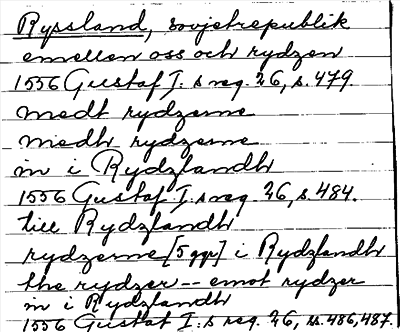 Ryssland, sovjetrepublik
emellen oss och rydzen
1556 Gustaf I. s reg. 26, s. 479.
medt rydzerne
medh rydzerne
in i Rydzlandh
1556 Gustaf I. s reg. 26, s. 484.
till Rydzlandh
rydzerne [5 ggr] i Rydzlandh
the rydzer -- emot rydzer
in i Rydzlandh
1556 Gustaf I. s reg. 26, ss. 486, 487.